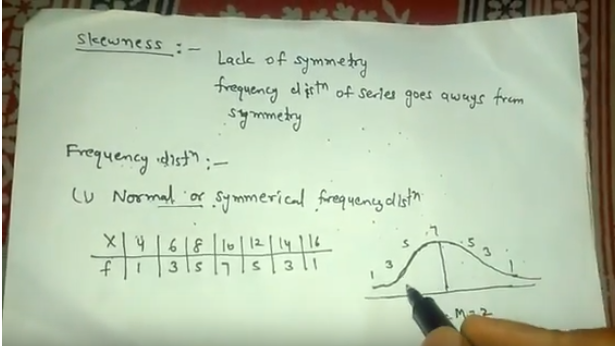 Skewness :-
Lack of symmetry
frequency distn of series goes aways from
symmetry
Frequency distn :-
(1) Normal or symmerical frequency distn
X | 4 | 6 | 8 | 10 | 12 | 14 | 16
f | 1 | 3 | 5 | 7 | 5 | 3 | 1
1 3 5 7 5 3 1
= M = Z